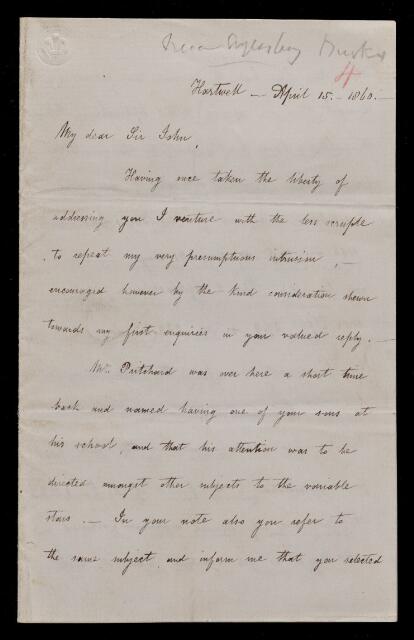 near Aylesbury Bucks
4
Hartwell — April 15. — 1860. —
My dear Sir John,
Having once taken the liberty of
addressing you I venture with the less scruple
to repeat my very presumptuous intrusion, —
encouraged however by the kind consideration shewn
towards my first enquiries in your valued reply. —
Mr. Pritchard was over here a short time
back and named having one of your sons at
his school, and that his attention was to be
directed amongst other subjects to the variable
stars. — In your note also you refer to
the same subject, and inform me that you selected